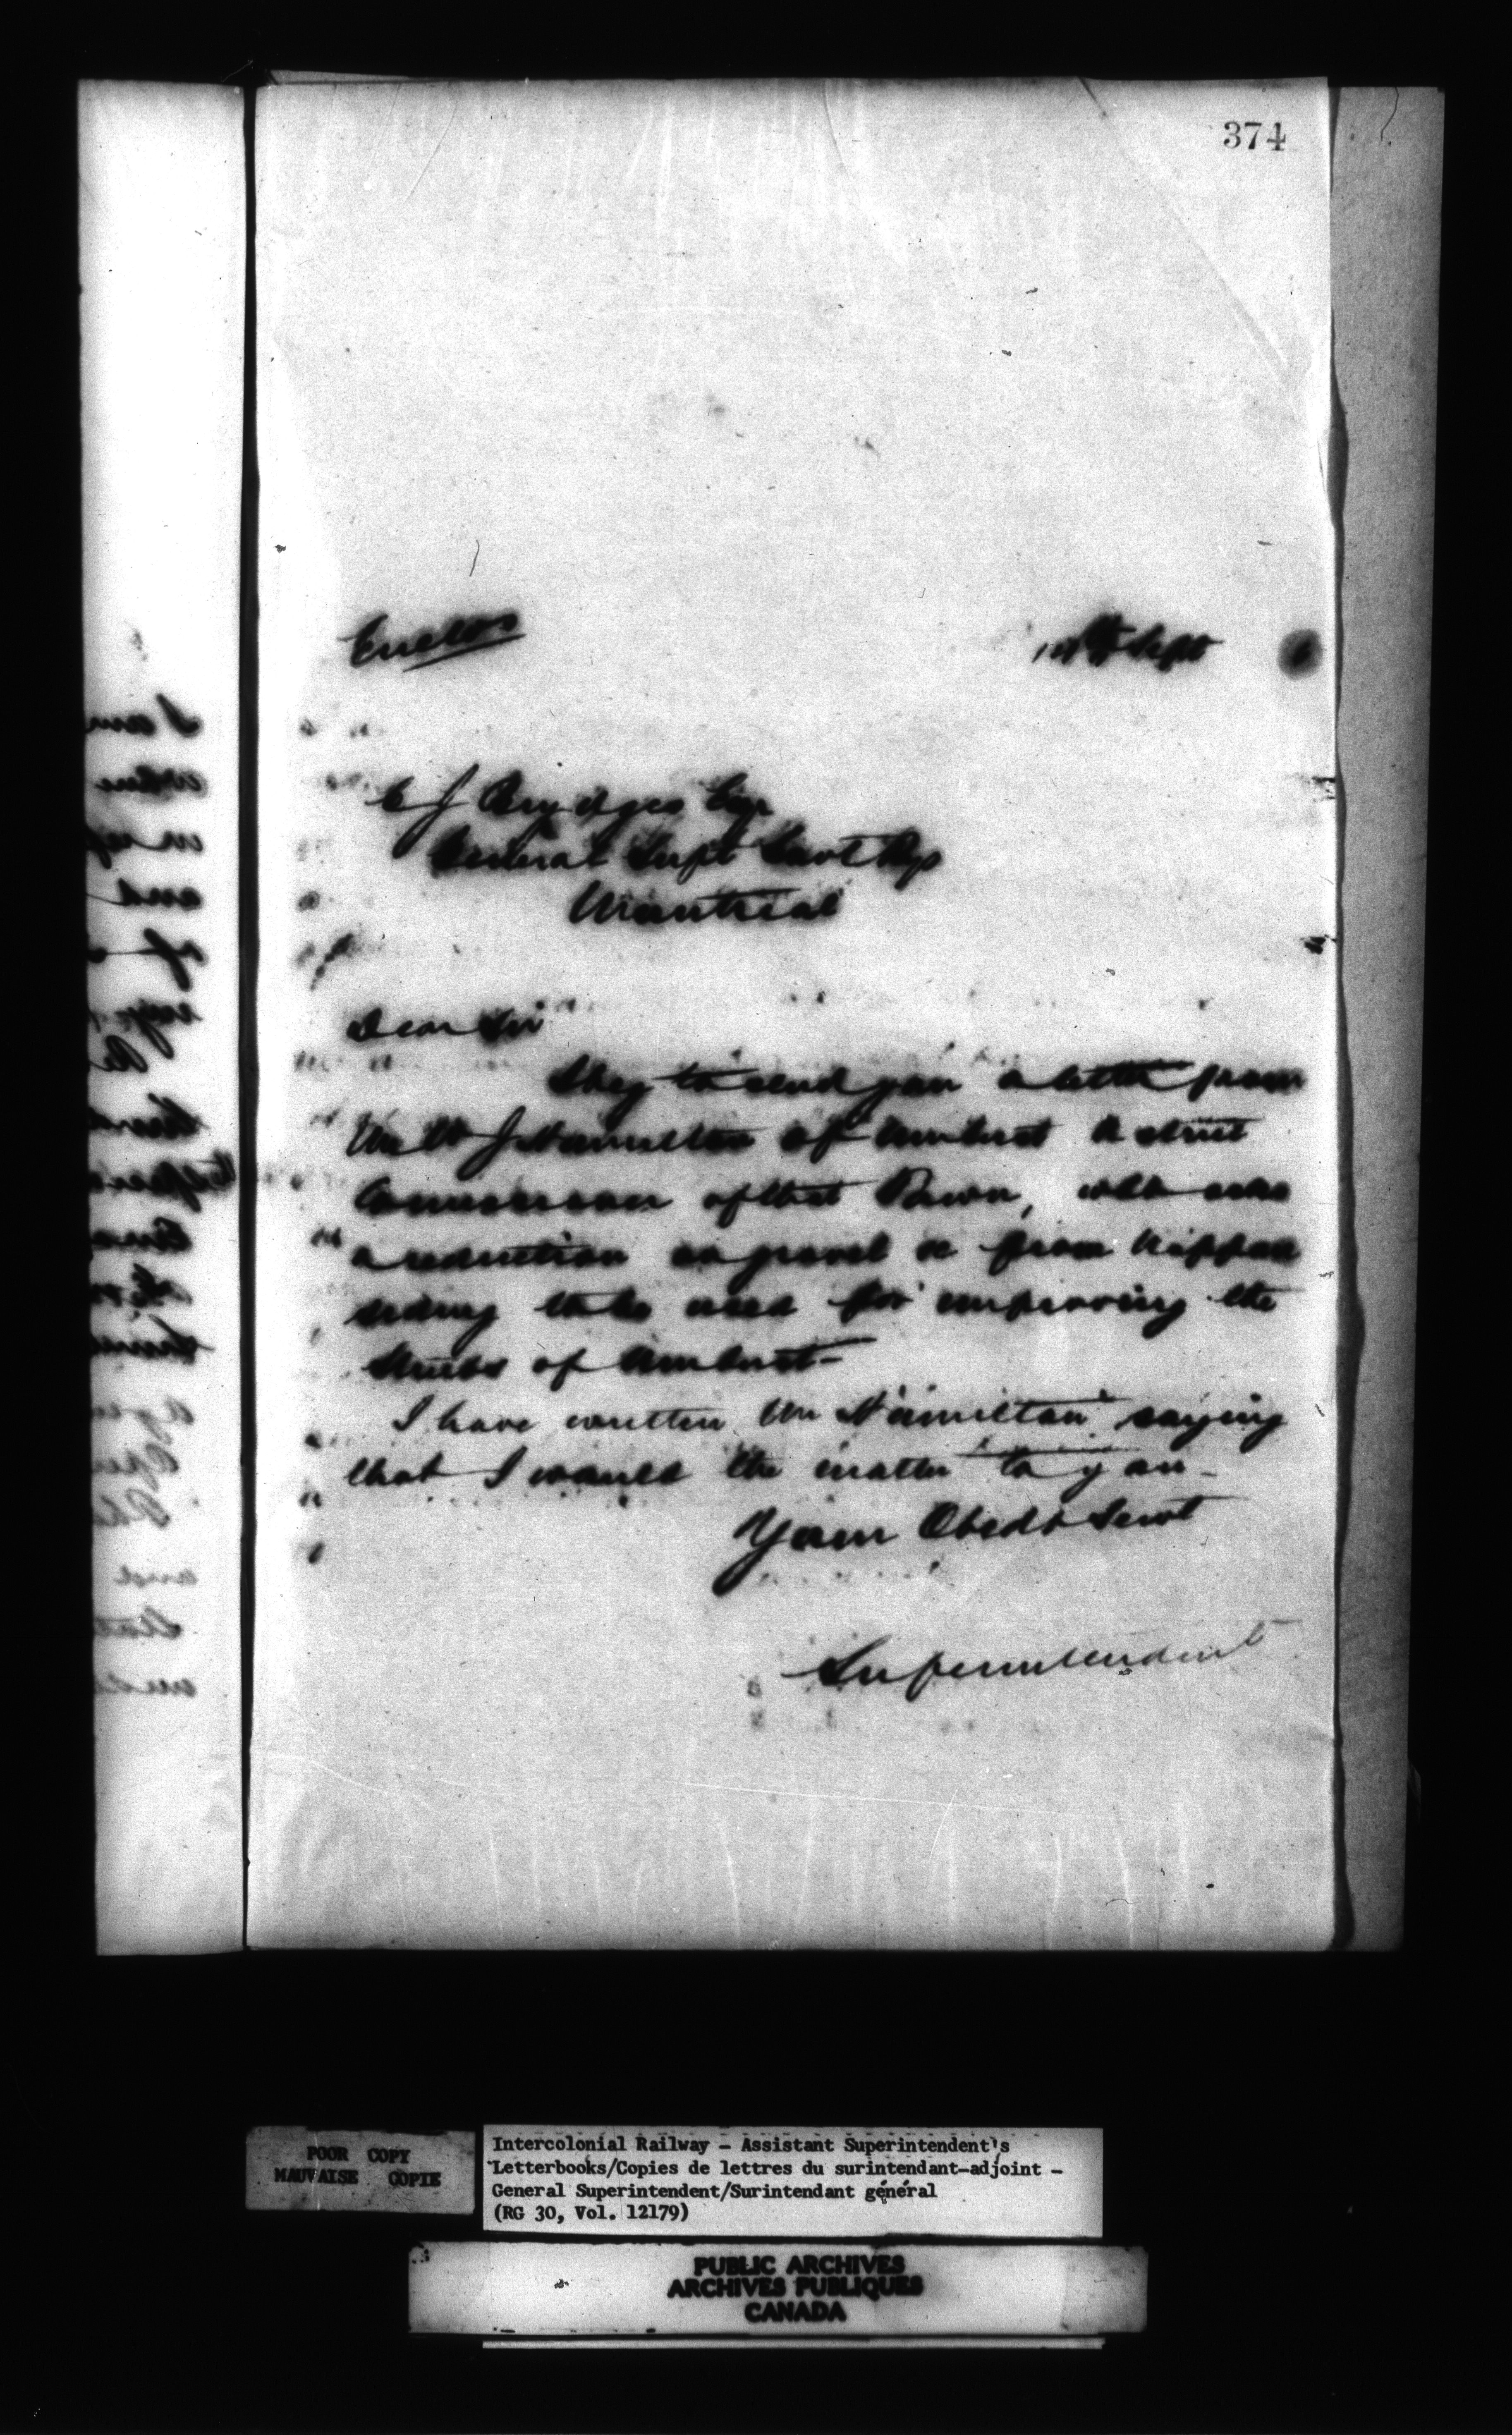 374
Enclos
Sept 6
C J Brydges Esqr
General Supt Govt Rys
Montreal
Dear Sir
I beg to send you a letter from
Mr W J Hamilton of Amherst a street
Commissioner of that Town, who
a reduction on gravel from Nappan
siding to be used for improving the
Streets of Amherst-
I have written Mr Hamilton saying
that I would the matter to you-
Your Obedt Servt
Superintendent
POOR COPY
MAUVAISE COPIE
Intercolonial Railway - Assistant Superintendent's
Letterbooks/Copies de lettres du surintendant-adjoint -
General Superintendent/Surintendant général
(RG 30, Vol. 12179)
PUBLIC ARCHIVES
ARCHIVES PUBLIQUES
CANADA